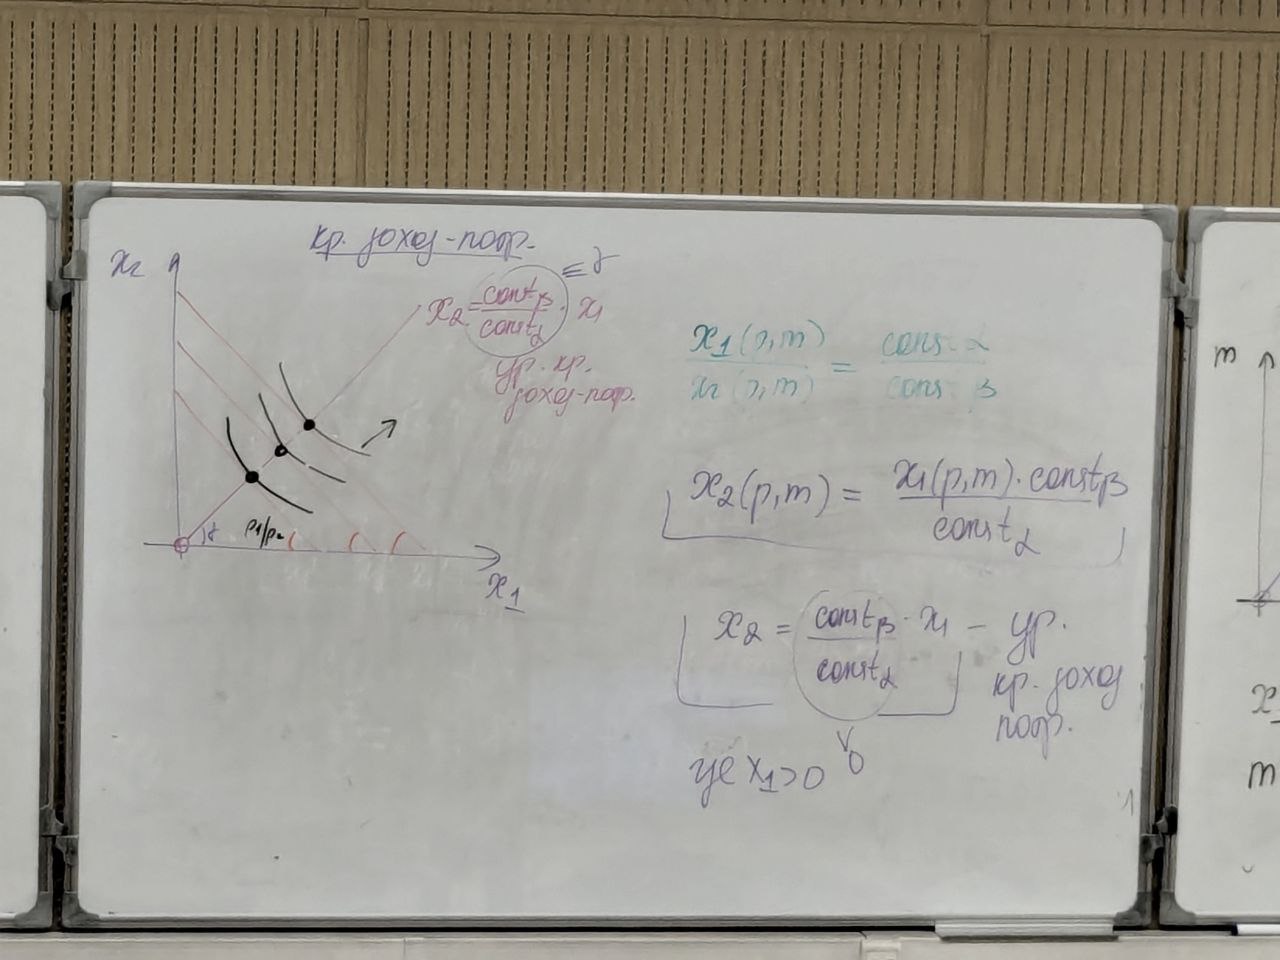 кр. доход-потр.
x₂
≡ γ
x₂ = constᵦ / const_α · x₁
ур. кр.
доход-потр.
γ
p₁/p₂
x₁
x₁(p,m) / x₂(p,m) = const α / const β
x₂(p,m) = x₁(p,m)·constᵦ / const_α
x₂ = constᵦ / const_α · x₁ – ур.
кр. доход
потр.
где x₁>0
m
m